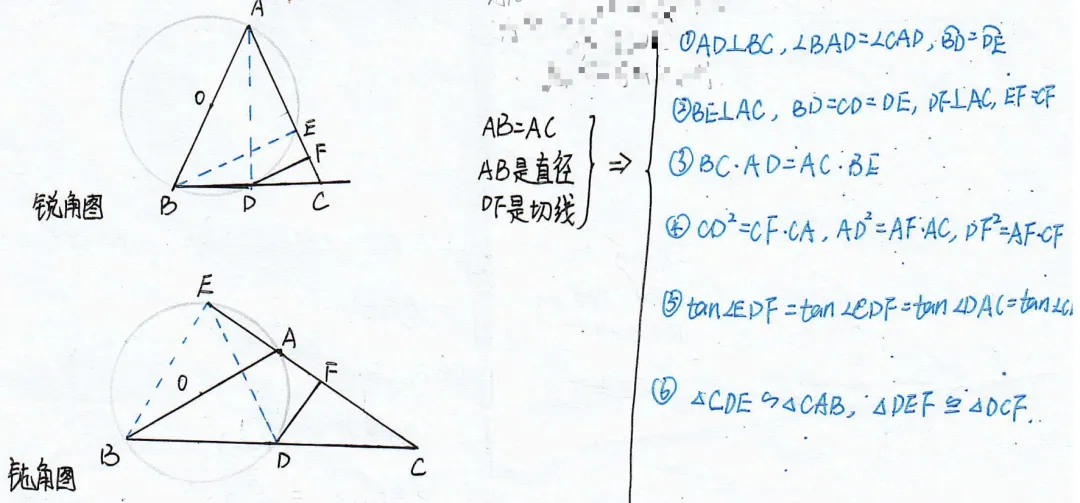 A
O
E
F
B
D
C
锐角图
E
A
O
F
B
D
C
钝角图
AB=AC
AB是直径
DF是切线
} ⇒ {
①AD⊥BC, ∠BAD=∠CAD, B͡D=D͡E
②BE⊥AC, BD=CD=DE, DF⊥AC, EF=CF
③BC·AD=AC·BE
④CD²=CF·CA, AD²=AF·AC, DF²=AF·CF
⑤tan∠EDF=tan∠CDF=tan∠DAC=tan∠
⑥ △CDE∽△CAB, △DEF≌△DCF.